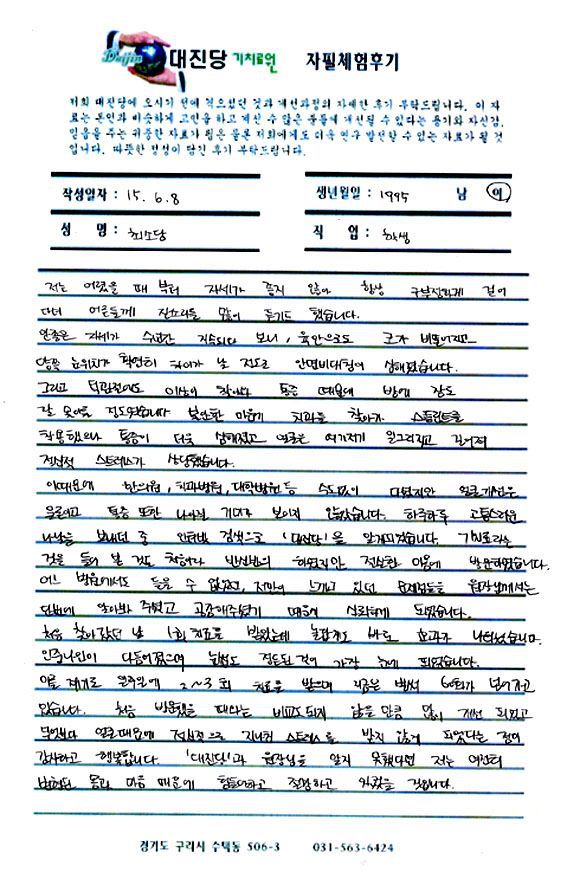 Daejin
대진당 기치료원 자필체험후기
저희 대진당에 오시기 전에 겪으셨던 것과 개선과정의 자세한 후기 부탁드립니다. 이 자
료는 본인과 비슷하게 고민을 하고 계신 수 많은 분들께 개선될 수 있다는 용기와 자신감,
믿음을 주는 귀중한 자료가 됨은 물론 저희에게도 더욱 연구 발전할 수 있는 자료가 될 것
입니다. 따뜻한 정성이 담긴 후기 부탁드립니다.
작성일자 : 15. 6. 8 생년월일 : 1995 남 여
성 명 : 최소당 직 업 : 학생
저는 어렸을 때 부터 자세가 좋지 않아 항상 구부정하게 걸어
다녀 어른들께 잔소리를 많이 듣기도 했습니다.
안좋은 자세가 수년간 지속되다 보니, 육안으로도 코가 비뚤어지고
양쪽 눈위치가 확연히 차이가 날 정도로 안면비대칭이 심해졌습니다.
그리고 턱관절에도 이상이 찾아와 통증 때문에 밤에 잠도
잘 못이룰 정도였습니다. 불안한 마음에 치과를 찾아가 스플린트를
착용했으나 통증이 더욱 심해졌고 얼굴은 여기저기 일그러지고 길어져
정신적 스트레스가 상당했습니다.
이때문에 한의원, 치과병원, 대학병원 등 수도없이 다녔지만 얼굴개선은
물론이고 통증 또한 나아질 기미가 보이지 않았습니다. 하루하루 고통스러운
나날을 보내던 중 인터넷 검색으로 '대진당'을 알게되었습니다. 기치료라는
것을 들어 본 것도 처음이라 반신반의 하였지만 간절한 마음에 방문하였습니다.
어느 병원에서도 들을 수 없었던, 저만이 느끼고 있던 문제점들을 원장님께서는
단번에 알아봐 주셨고 공감해주셨기 때문에 신뢰하게 되었습니다.
처음 찾아갔던 날 1회 치료를 받았는데 놀랍게도 바로 효과가 나타났습니다.
안족라인이 다듬어졌으며 눈썹도 정돈된 것이 가장 눈에 띄었습니다.
이를 계기로 일주일에 2~3회 치료를 받으며 지금은 벌써 60회가 넘어가고
있습니다. 처음 방문했을 때와는 비교도 되지 않을 만큼 많이 개선 되었고
무엇보다 얼굴때문에 정신적으로 지나친 스트레스를 받지 않게 되었다는 점이
감사하고 행복합니다. '대진당'과 원장님을 알지 못했다면 저는 여전히
변형된 몸과 마음 때문에 힘들어하고 절망하고 있었을 것입니다.
경기도 구리시 수택동 506-3 031-563-6424